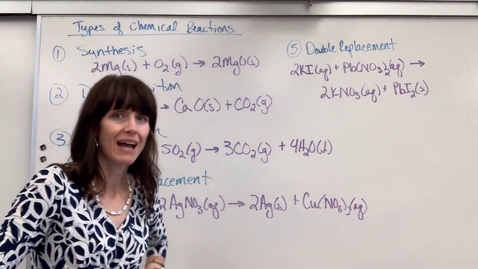 Types of Chemical Reactions
① Synthesis
2Mg(s) + O₂(g) → 2MgO(s)
②
→ CaO(s) + CO₂(g)
③
5O₂(g) → 3CO₂(g) + 4H₂O(l)
2AgNO₃(aq) → 2Ag(s) + Cu(NO₃)₂(aq)
⑤ Double Replacement
2KI(aq) + Pb(NO₃)₂(aq) →
2KNO₃(aq) + PbI₂(s)